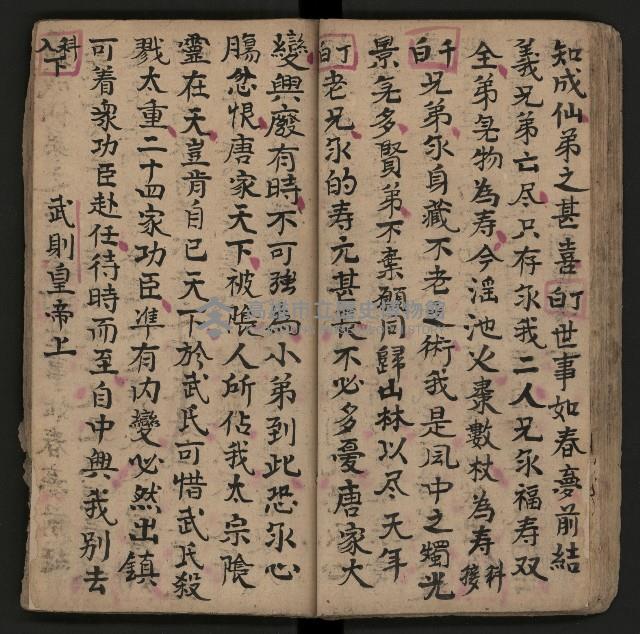 知成仙弟之甚喜丁白世事如春夢前結
義兄弟亡尽只存尔我二人兄尔福寿双
全弟皃物為寿今滛池火棗數杖為寿科接
千白兄弟尔身藏不老之術我是風中之獨光
景皃多賢弟不棄願同歸山林以尽天年
丁白老兄尔的寿元甚長不必多憂唐家大
變興廢有時不可強為小弟到此恐尔心
腸忿恨唐家天下被陰人所佔我太宗陰
靈在天豈肯自已天下於武氏可惜武氏殺
戮太重二十四家功臣準有内變必然出鎮
可着衆功臣赴任待時而至自中興我别去
科入下
武則皇帝上
高雄市立歷史博物館